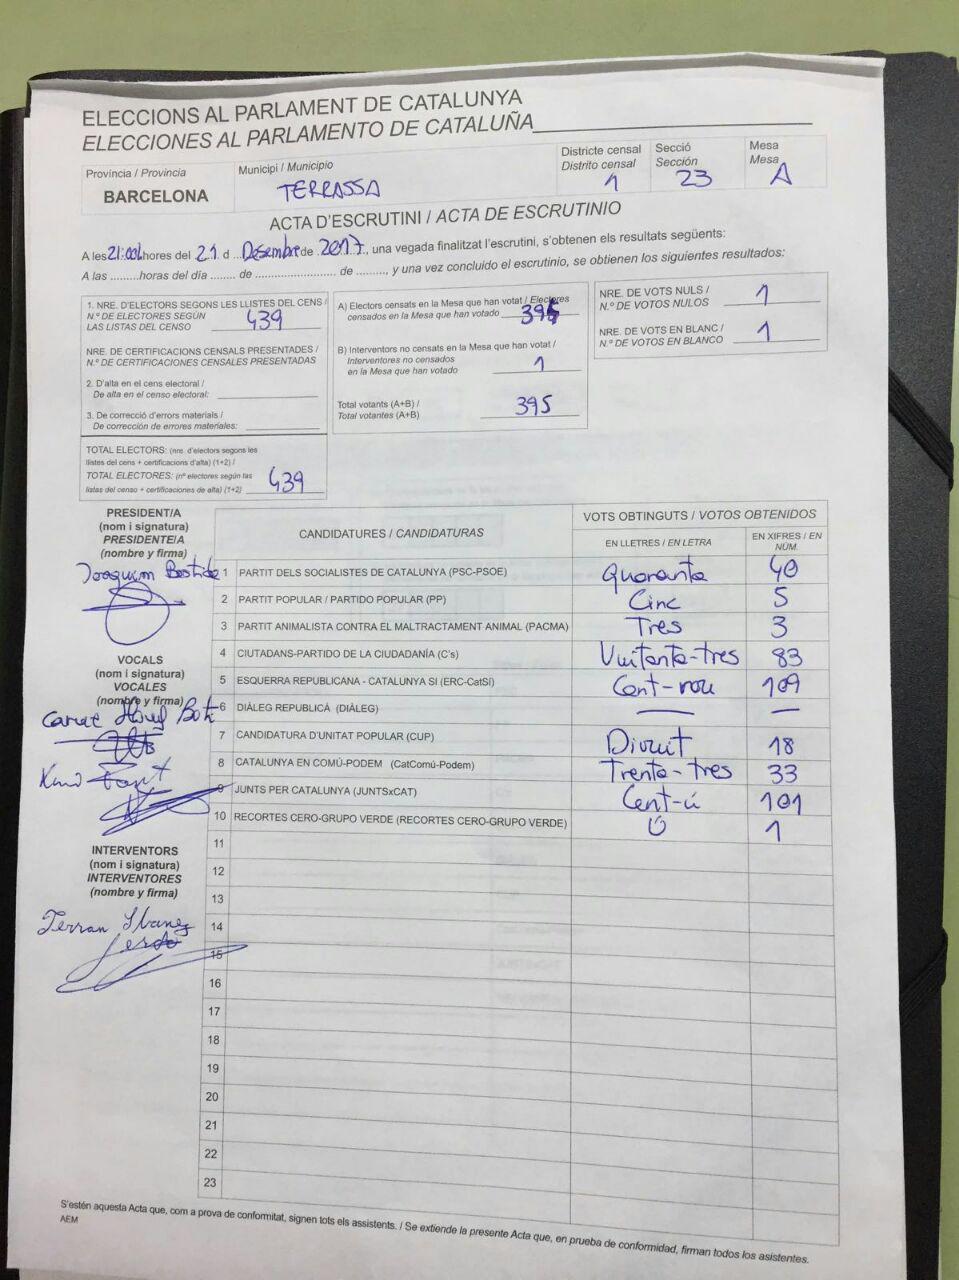 ELECCIONS AL PARLAMENT DE CATALUNYA
ELECCIONES AL PARLAMENTO DE CATALUÑA
Província / Provincia
BARCELONA
Municipi / Municipio
TERRASSA
Districte censal
Distrito censal
1
Secció
Sección
23
Mesa
Mesa
A
ACTA D'ESCRUTINI / ACTA DE ESCRUTINIO
A les 21:00 hores del 21 d Desembre de 2017, una vegada finalitzat l'escrutini, s'obtenen els resultats següents:
A las .........horas del día ....... de ...................... de ........, y una vez concluido el escrutinio, se obtienen los siguientes resultados:
1. NRE. D'ELECTORS SEGONS LES LLISTES DEL CENS /
N.º DE ELECTORES SEGÚN
LAS LISTAS DEL CENSO 439
NRE. DE CERTIFICACIONS CENSALS PRESENTADES /
N.º DE CERTIFICACIONES CENSALES PRESENTADAS
2. D'alta en el cens electoral /
De alta en el censo electoral:
3. De correcció d'errors materials /
De corrección de errores materiales:
TOTAL ELECTORS: (nre. d'electors segons les
llistes del cens + certificacions d'alta) (1+2) /
TOTAL ELECTORES: (nº electores según las
listas del censo + certificaciones de alta) (1+2) 439
A) Electors censats en la Mesa que han votat / Electores
censados en la Mesa que han votado
B) Interventors no censats en la Mesa que han votat /
Interventores no censados
en la Mesa que han votado 1
Total votants (A+B) /
Total votantes (A+B) 395
NRE. DE VOTS NULS /
N.º DE VOTOS NULOS 1
NRE. DE VOTS EN BLANC /
N.º DE VOTOS EN BLANCO 1
PRESIDENT/A
(nom i signatura)
PRESIDENTE/A
(nombre y firma)
Joaquim
VOCALS
(nom i signatura)
VOCALES
(nombre y firma)
INTERVENTORS
(nom i signatura)
INTERVENTORES
(nombre y firma)
Ferran
CANDIDATURES / CANDIDATURAS
VOTS OBTINGUTS / VOTOS OBTENIDOS
EN LLETRES / EN LETRA
EN XIFRES / EN NÚM.
1 PARTIT DELS SOCIALISTES DE CATALUNYA (PSC-PSOE) Quaranta 40
2 PARTIT POPULAR / PARTIDO POPULAR (PP) Cinc 5
3 PARTIT ANIMALISTA CONTRA EL MALTRACTAMENT ANIMAL (PACMA) Tres 3
4 CIUTADANS-PARTIDO DE LA CIUDADANÍA (C's) Vuitanta-tres 83
5 ESQUERRA REPUBLICANA - CATALUNYA SI (ERC-CatSí) Cent-nou 109
6 DIÀLEG REPUBLICÀ (DIÀLEG) — —
7 CANDIDATURA D'UNITAT POPULAR (CUP) Divuit 18
8 CATALUNYA EN COMÚ-PODEM (CatComú-Podem) Trenta-tres 33
9 JUNTS PER CATALUNYA (JUNTSxCAT) Cent-ú 101
10 RECORTES CERO-GRUPO VERDE (RECORTES CERO-GRUPO VERDE) Ú 1
11
12
13
14
15
16
17
18
19
20
21
22
23
S'estén aquesta Acta que, com a prova de conformitat, signen tots els assistents. / Se extiende la presente Acta que, en prueba de conformidad, firman todos los asistentes.
AEM